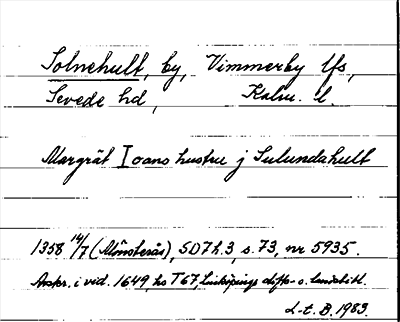 Solnehult, by, Vimmerby lfs,
Sevede hd, Kalm. l.
Margrät Ioans hustru j Sulundahult
1358 14/7 (Mönsterås), SD 7 h. 3, s. 73, nr 5935.
Avskr. i vid. 1649, hs T 67, Linköpings stifts- o. landsbibl.
L-t. B. 1983.